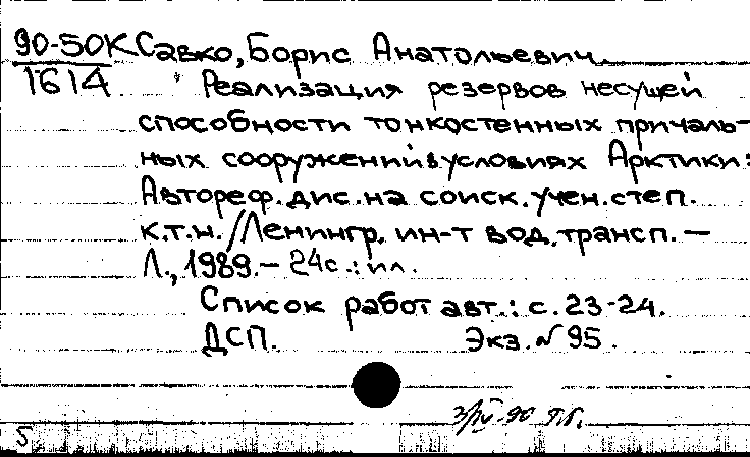 90-50К Савко, Борис Анатольевич.
1614 Реализация резервов несущей
способности тонкостенных причаль-
ных сооружений в условиях Арктики:
Автореф. дис. на соиск. учен. степ.
к.т.н. / Ленингр. ин-т вод. трансп. —
Л., 1989. — 24с.: ил.
Список работ авт.: с. 23-24.
ДСП. Экз. № 95.
5